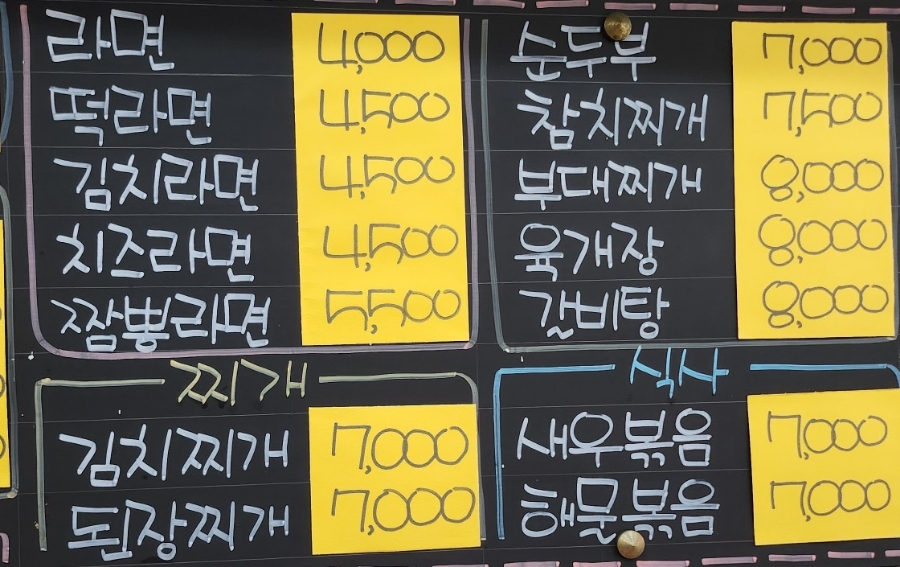 라면 4,000
떡라면 4,500
김치라면 4,500
치즈라면 4,500
짬뽕라면 5,500
찌개
김치찌개 7,000
된장찌개 7,000
순두부 7,000
참치찌개 7,500
부대찌개 8,000
육개장 8,000
갈비탕 8,000
식사
새우볶음 7,000
해물볶음 7,000